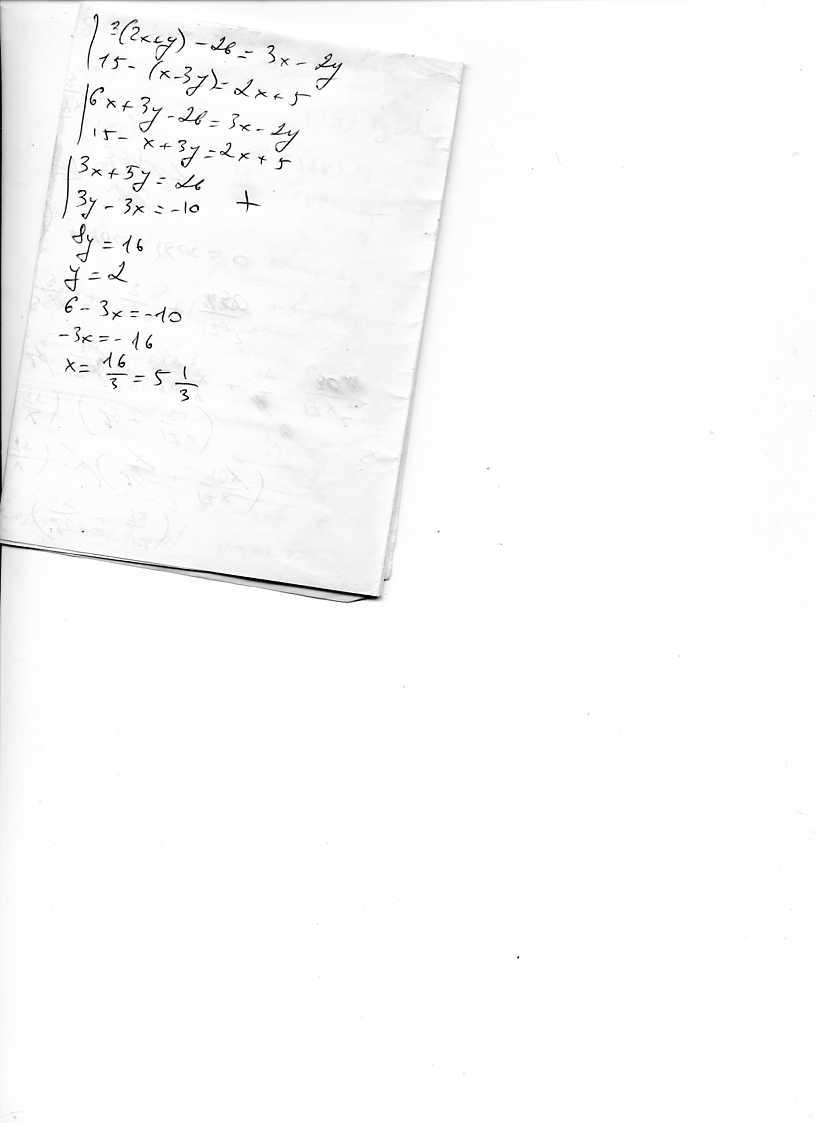 3(2x+y) - 26 = 3x - 2y
15 - (x-3y) = 2x + 5
6x + 3y - 26 = 3x - 2y
15 - x + 3y = 2x + 5
3x + 5y = 26
3y - 3x = -10 +
8y = 16
y = 2
6 - 3x = -10
-3x = -16
x = 16/3 = 5 1/3